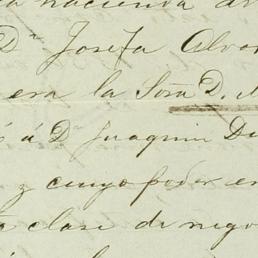 a hacienda de
Dª Josefa Alvar
era la Sora D.
ó á Dn Juaquin De
y cuyo poder en
clase de nego